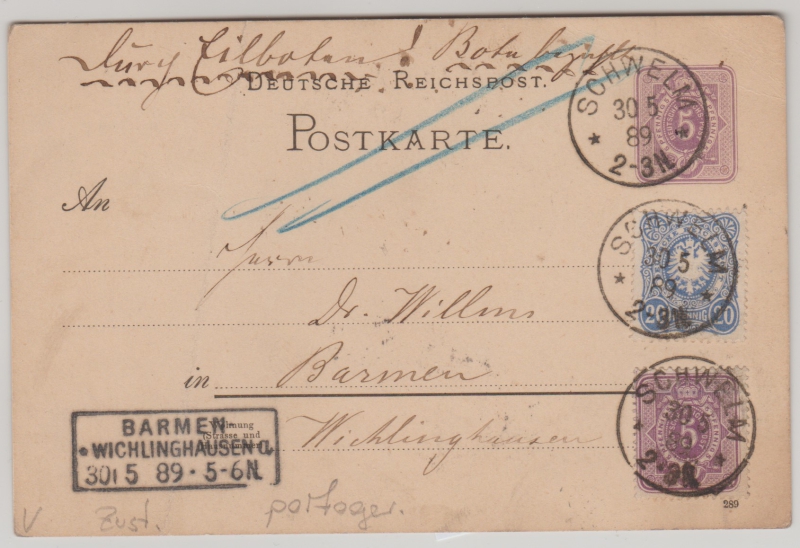 Durch Eilboten! Bote bezahlt
DEUTSCHE REICHSPOST.
POSTKARTE.
SCHWELM
30 5
89
2-3N.
5
An
Herrn
SCHWELM
30 5
89
2-3N.
PFENNIG
20 20
Dr. Willms
in Barmen
SCHWELM
30 5
89
2-3N.
5
Wohnung
(Straße und
Wichlinghausen
BARMEN
WICHLINGHAUSEN a.
30 5 89 · 5-6N.
289
V Zust. portoger.